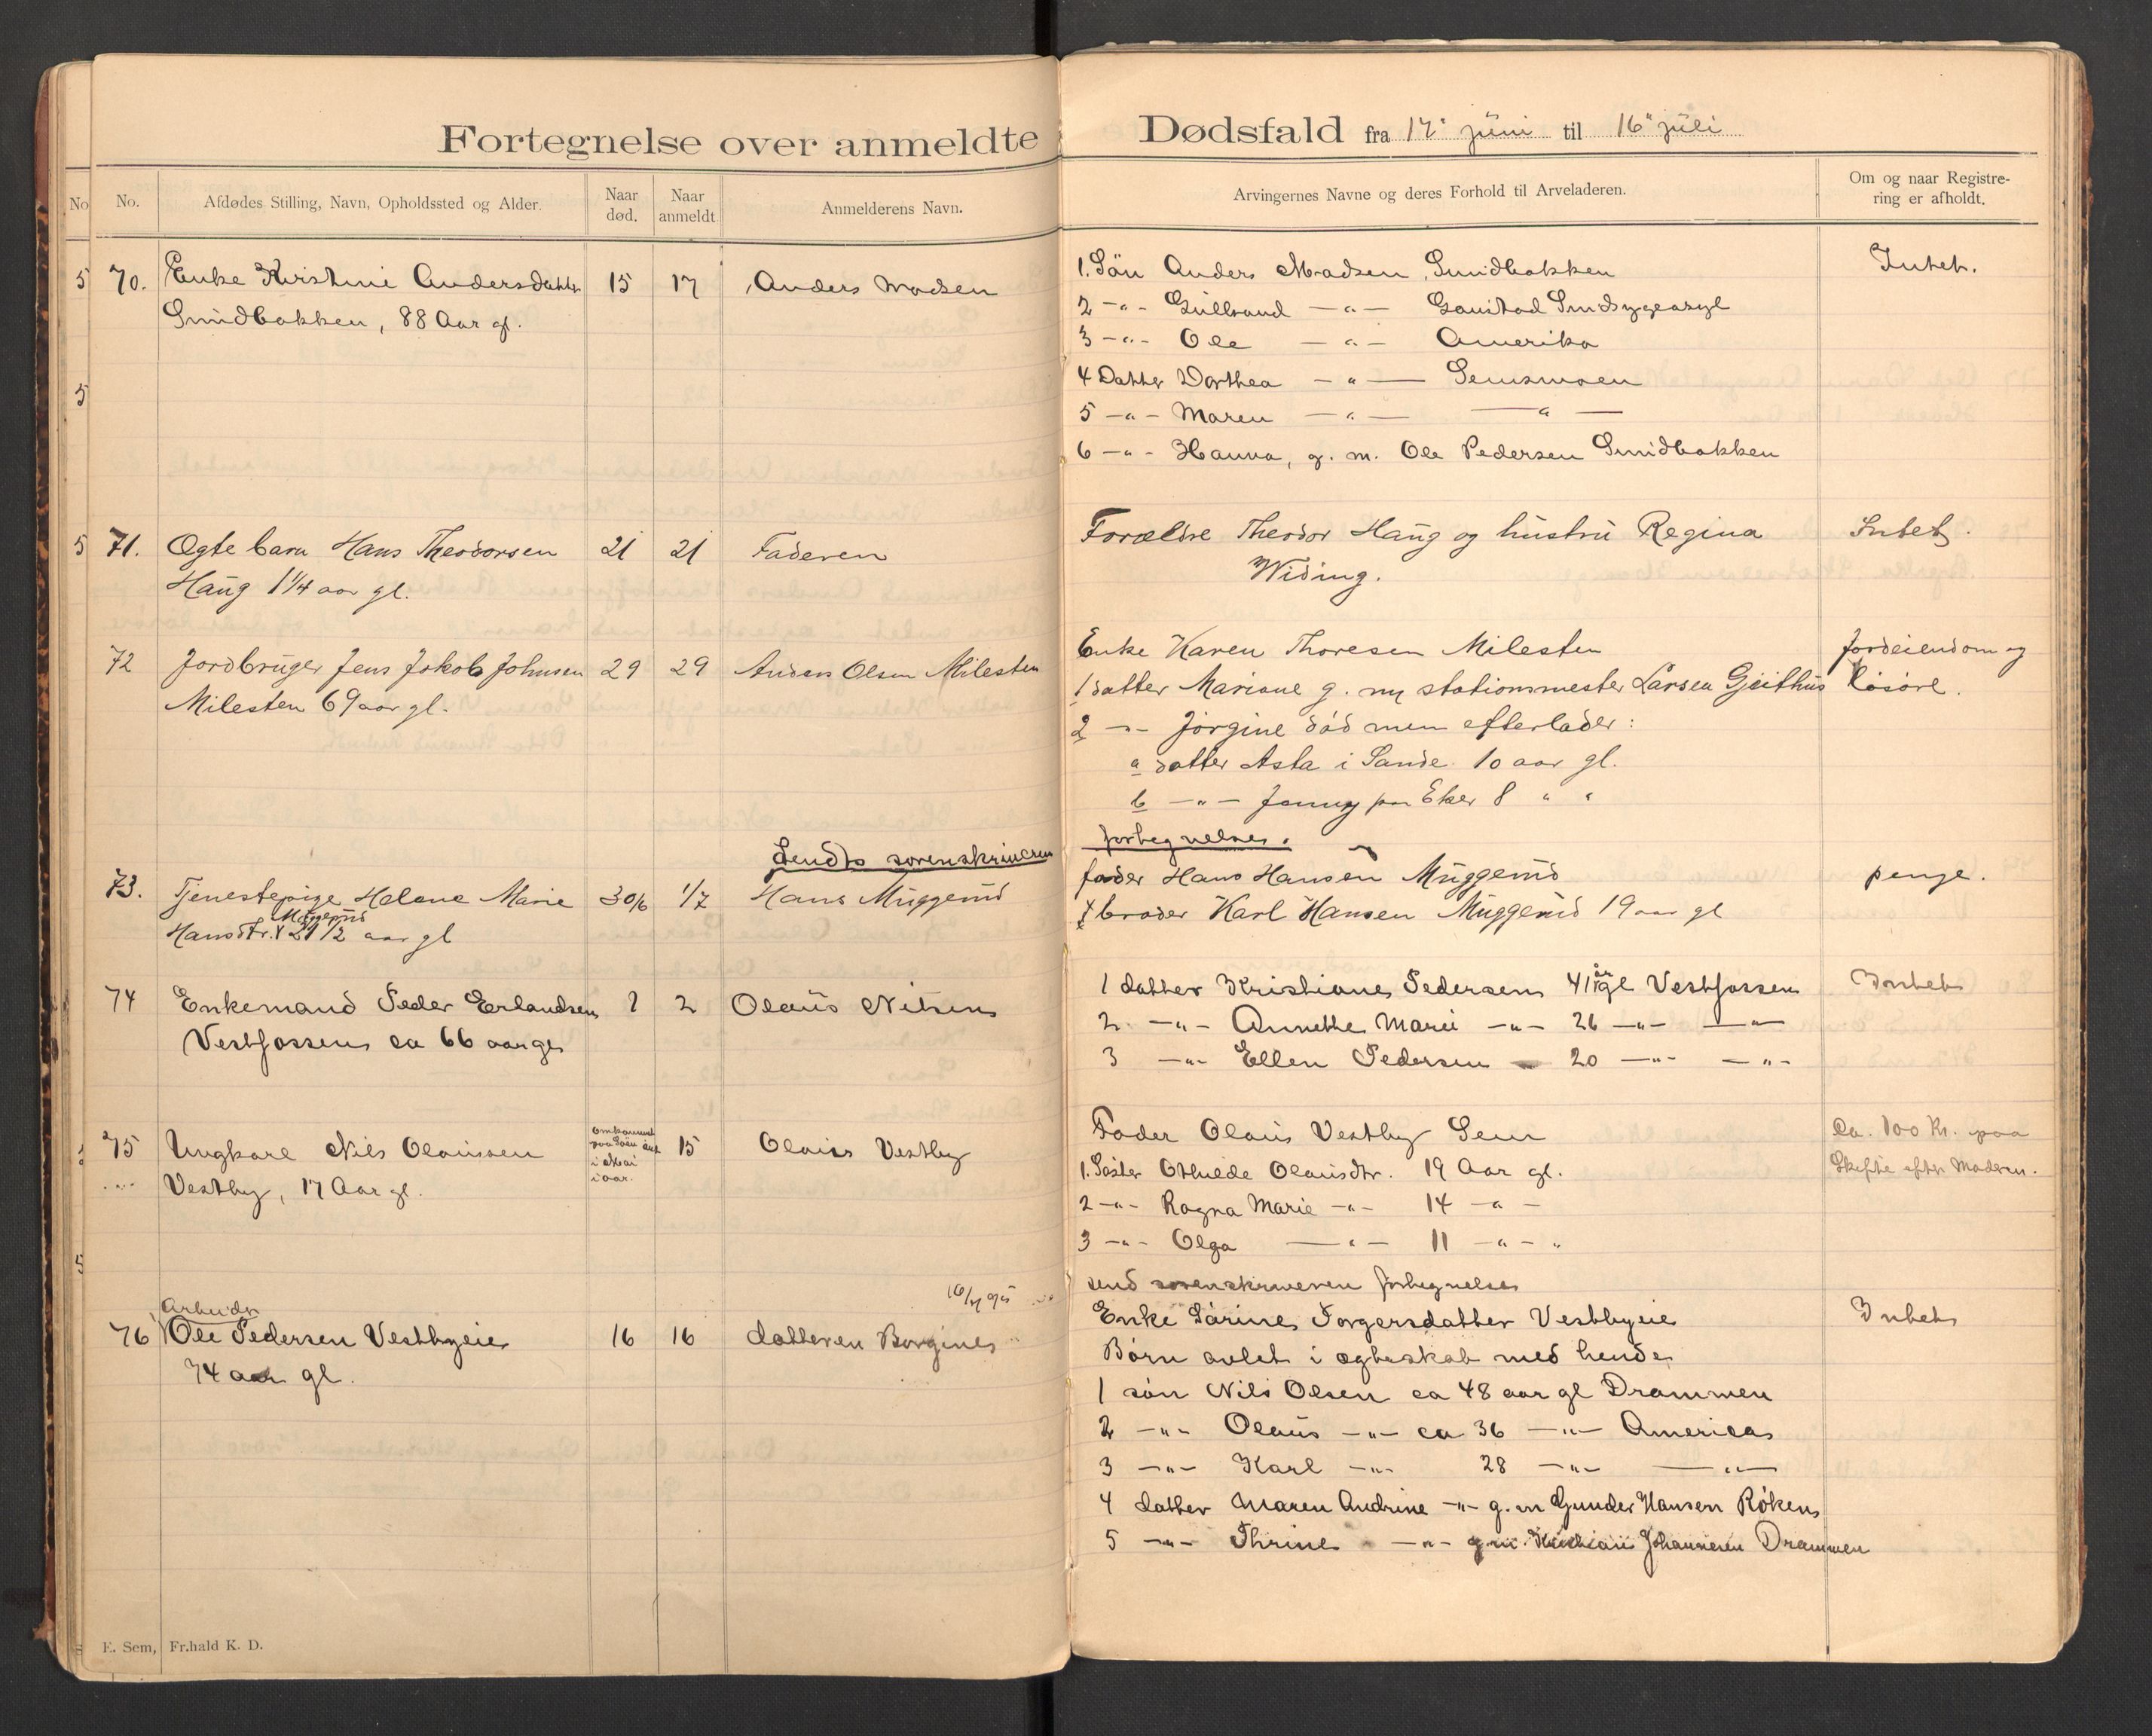 Fortegnelse over anmeldte Dødsfald fra 17' juni til 16' juli
No
No.
Afdødes Stilling, Navn, Opholdssted og Alder.
Naar død.
Naar anmeldt
Anmelderens Navn.
Arvingernes Navne og deres Forhold til Arveladeren.
Om og naar Registre-
ring er afholdt.
5 70. Enke Kristine Andersdatter 15 17 Anders Madsen
Smidbakken, 88 Aar gl.
1. Sön Anders Madsen, Smidbakken Intet.
2 -"- Gullvand -"- Gaustad Sindsygeasyl
3 -"- Ole -"- Amerika
4 Datter Dorthea -"- Semsmoen
5 -"- Maren -"- -"-
6 -"- Hanna, g. m. Ole Pedersen Smidbakken
5
5 71. Ægte barn Hans Theodorsen 21 21 Faderen
Haug 1 1/4 aar gl.
Forældre Theodor Haug og hustru Regina Intet.
Widing.
72 Jordbruger Jens Jakob Johnsen 29 29 Anders Olsen Milesten
Milesten 69 aar gl.
Enke Karen Thoresen Milesten Jordeiendom og
1 datter Mariane g. m. stationsmester Larsen Gjeithus lösöre.
2 -"- Jörgine död men efterlader:
a datter Asta i Sande 10 aar gl.
b -"- Jenny paa Eker 8 " "
Sendt sorenskriveren fortegnelse.
73. Tjenestepige Helene Marie 30/6 1/7 Hans Muggerud
Muggerud
Hansdtr. 21 1/2 aar gl
fader Hans Hansen Muggerud penge.
1 broder Karl Hansen Muggerud 19 aar gl
74 Enkemand Peder Erlandsen 1 2 Olaus Nilsen
Vestfossen ca 66 aar gl
1 datter Kristiane Pedersen 41 år gl Vestfossen Intet
2 -"- Annette Marie -"- 26 -"- -"-
3 -"- Ellen Pedersen 20 -"- -"-
75 Ungkarl Nils Olaussen
omkommet
paa Söen
i Mai
i aar.
15 Olaus Vestby
Vestby, 17 Aar gl.
Fader Olaus Vestby Sem Ca. 100 Kr. paa
Skifte efter Moderen.
1. Söster Othilde Olausdtr. 19 Aar gl.
2 -"- Ragna Marie -"- 14 -"-
3 -"- Olga -"- 11 -"- "
5
send sorenskriveren fortegnelse
Arbeider
76 Ole Pedersen Vestbyeie 16 16 datteren Borgine
74 aar gl.
Enke Sörine Torgersdatter Vestbyeie Intet
Börn avlet i ægteskab med hende
1 sön Nils Olsen ca 48 aar gl Drammen
2 -"- Olaus -"- ca 36 -"- America
3 -"- Karl -"- 28 -"- -"-
4 datter Maren Andrine -"- g. m Gunder Hansen Röken
5 -"- Thrine -"- g. m. Kristian Johannesen Drammen
E. Sem, Fr.hald K. D.